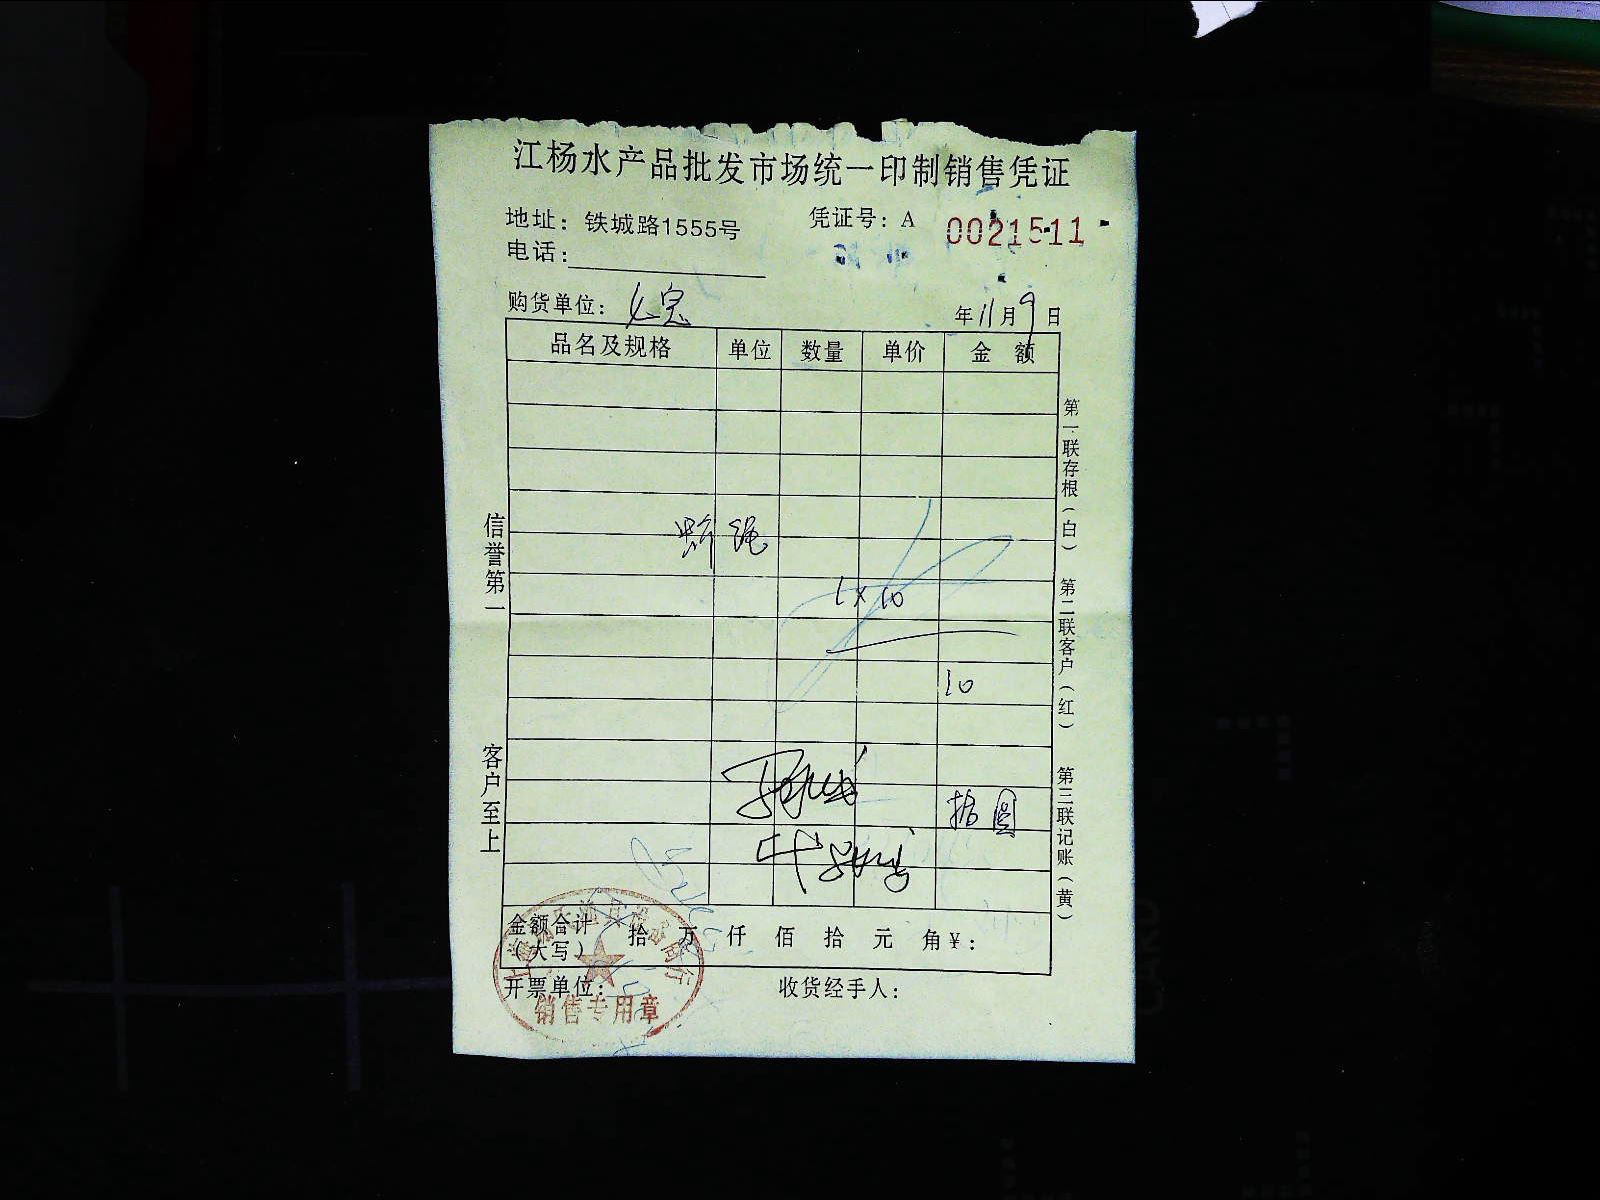 江杨水产品批发市场统一印制销售凭证
地址：铁城路1555号
凭证号：A 0021511
电话：
购货单位：
年11月9日
品名及规格 单位 数量 单价 金 额
绳
1×10
10
拾圆
金额合计（大写） 拾 万 仟 佰 拾 元 角¥：
开票单位：
收货经手人：
销售专用章
信誉第一
客户至上
第一联存根（白）
第二联客户（红）
第三联记账（黄）